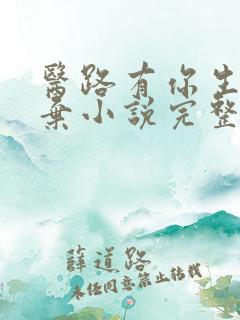 醫路有你生
棄小說完整
薛道路
未任同意禁止轉載